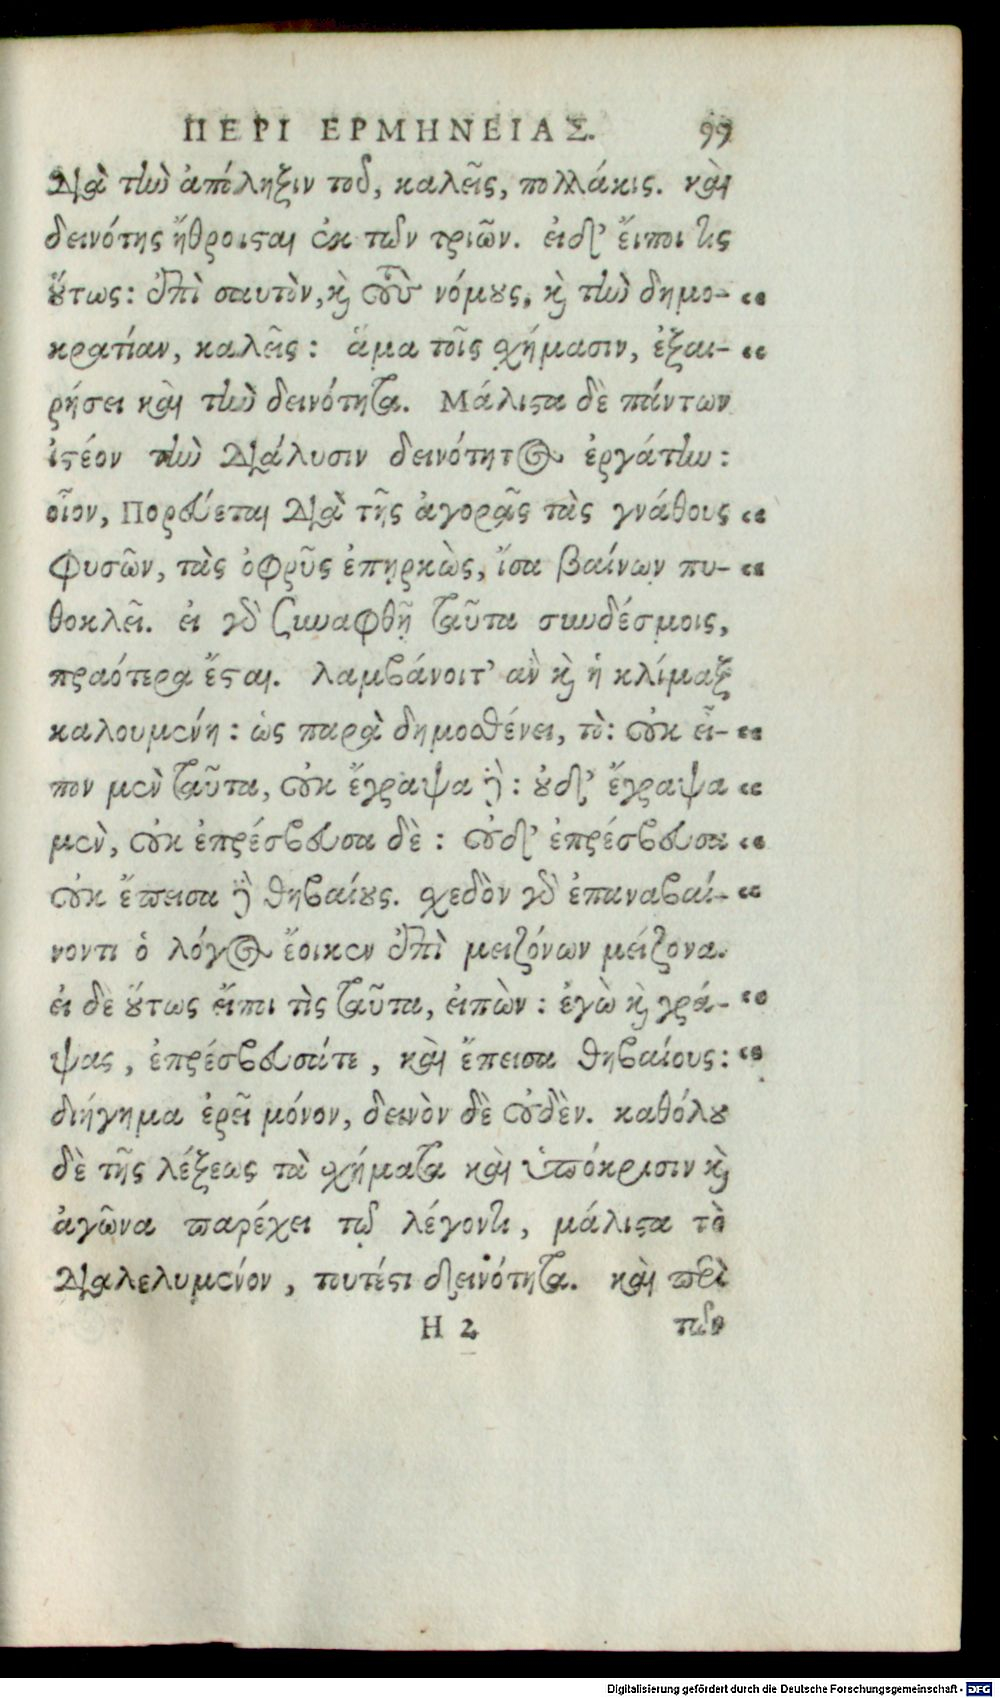 ΠΕΡΙ ΕΡΜΗΝΕΙΑΣ. 99
Διὰ τὴν ἀπόληξιν τοῦ, καλεῖς, πολλάκις. καὶ
δεινότης ἤθροισται ἐκ τῶν τριῶν. εἰ δ' ἔιποι τις
ὅυτως: ἐπὶ σαυτὸν, καὶ τοὺς νόμους, καὶ τὴν δημο- “
κρατίαν, καλεῖς: ἅμα τοῖς σχήμασιν, ἐξαι- “
ρήσει καὶ τὴν δεινότητα. Μάλιστα δὲ πάντων
ἰστέον τὴν Διάλυσιν δεινότητος ἐργάτιν:
οἷον, Πορεύεται Διὰ τῆς ἀγορᾶς τὰς γνάθους “
φυσῶν, τὰς ὀφρῦς ἐπῃρκὼς, ἴσα βαίνων πυ- “
θοκλεῖ. ἐι γὰρ συναφθῇ ταῦτα συνδέσμοις,
πραότερα ἔσται. λαμβάνοιτ' ἀν καὶ ἡ κλίμαξ
καλουμένη: ὡς παρὰ δημοσθένει, τὸ: οὐκ εἶ- “
πον μὲν ταῦτα, οὐκ ἔγραψα δὲ: οὐδ' ἔγραψα “
μὲν, οὐκ ἐπρέσβευσα δὲ: οὐδ' ἐπρέσβευσα “
οὐκ ἔπεισα δὲ θηβαίους. σχεδὸν γὰρ ἐπαναβαί- “
νοντι ὁ λόγος ἔοικεν ἐπὶ μειζόνων μείζονα.
ἐι δὲ ὅυτως ἔιποι τὶς ταῦτα, ἐιπὼν: ἐγὼ καὶ γρά- “
ψας, ἐπρέσβευσάτε, καὶ ἔπεισα θηβαίους: “
διήγημα ἐρεῖ μόνον, δεινὸν δὲ οὐδὲν. καθόλου
δὲ τῆς λέξεως τὰ σχήματα καὶ ὑπόκρισιν καὶ
ἀγῶνα παρέχει τῷ λέγοντι, μάλιστα τὸ
Διαλελυμένον, τουτέστι δεινότητα. καὶ περὶ
Η 2 τῶν
Digitalisierung gefördert durch die Deutsche Forschungsgemeinschaft - DFG